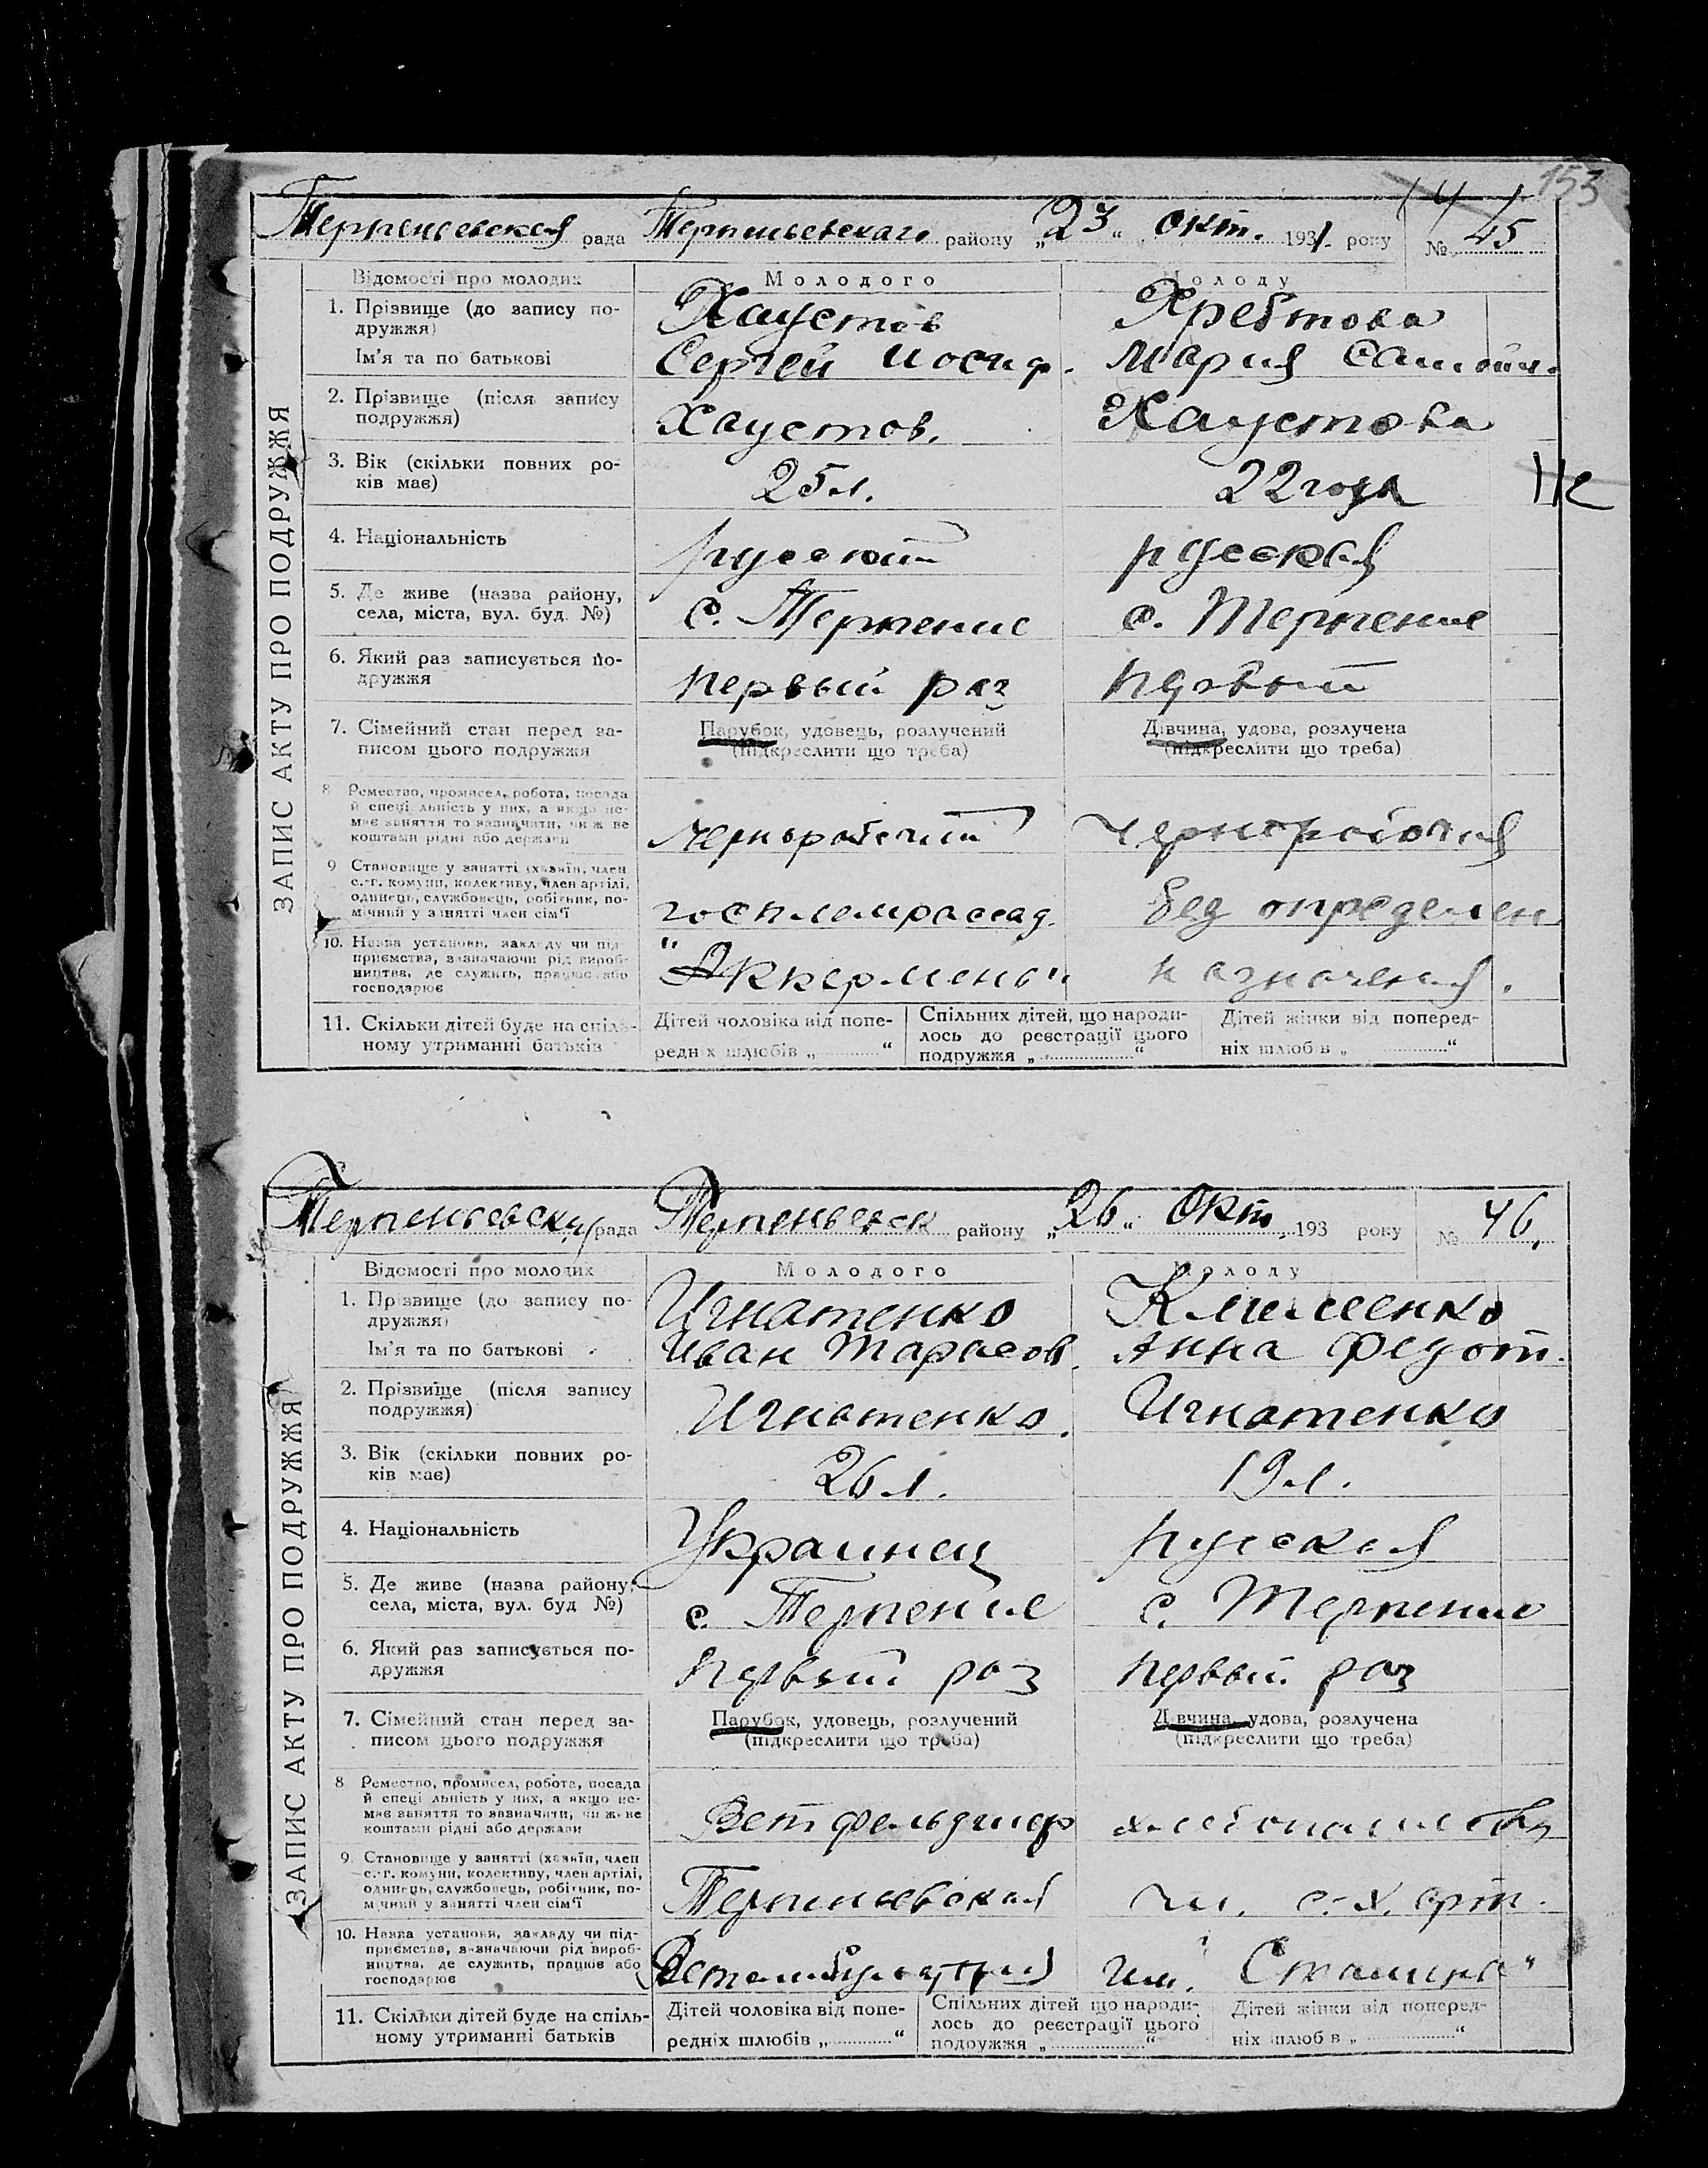 153
Терпеньевская рада Терпеньевскаго району „23“ окт. 1931 року № 45
ЗАПИС АКТУ ПРО ПОДРУЖЖЯ
Відомості про молодих Молодого Молоду
1. Прізвище (до запису по-
дружжя) Хаустов Хребтова
Ім'я та по батькові Сергей Иосиф. Мария Самойл.
2. Прізвище (після запису
подружжя) Хаустов. Хаустова
3. Вік (скільки повних ро-
ків має) 25 л. 22 года
4. Національність русский русская
5. Де живе (назва району,
села, міста, вул. буд. №) с. Терпение с. Терпение
6. Який раз записується по-
дружжя первый раз первый
7. Сімейний стан перед за- Парубок, удовець, розлучений Дівчина, удова, розлучена
писом цього подружжя (підкреслити що треба) (підкреслити що треба)
8 Ремество, промисел, робота, посада
й спеціяльність у них, а якщо не-
має заняття то зазначити, чи ж не
коштами рідні або держави чернорабочий чернорабочая
9 Становище у занятті (хазяїн, член
с.-г. комуни, колективу, член артілі,
одинець, службовець, робітник, по-
мічний у занятті член сім'ї госплемрассад. без определен
10. Назва установи, закладу чи під-
приємства, зазначаючи рід вироб-
ництва, де служить, працює або
господарює "Аккермень" назначения.
11. Скільки дітей буде на спіль- Дітей чоловіка від попе- Спільних дітей, що народи- Дітей жінки від поперед-
ному утриманні батьків редніх шлюбів „ “ лось до реєстрації цього ніх шлюбів „ “
подружжя „ “
Терпеньевская рада Терпеньевск району „26“ Окт. 193 року № 46.
ЗАПИС АКТУ ПРО ПОДРУЖЖЯ
Відомості про молодих Молодого Молоду
1. Прізвище (до запису по-
дружжя) Игнатенко Клименко
Ім'я та по батькові Иван Тарасов. Анна Федот.
2. Прізвище (після запису
подружжя) Игнатенко. Игнатенко
3. Вік (скільки повних ро-
ків має) 26 л. 19 л.
4. Національність Украинец русская
5. Де живе (назва району,
села, міста, вул. буд №) с. Терпение с. Терпение
6. Який раз записується по-
дружжя первый раз первый раз
7. Сімейний стан перед за- Парубок, удовець, розлучений Дівчина, удова, розлучена
писом цього подружжя (підкреслити що треба) (підкреслити що треба)
8 Ремество, промисел, робота, посада
й спеціяльність у них, а якщо не-
має заняття то зазначити, чи ж не
коштами рідні або держави Ветфельдшер хлебопашество
9. Становище у занятті (хазяїн, член
с.-г. комуни, колективу, член артілі,
одинець, службовець, робітник, по-
мічний у занятті член сім'ї Терпеньевская чл. с.-х. арт.
10. Назва установи, закладу чи під-
приємства, зазначаючи рід вироб-
ництва, де служить, працює або
господарює Ветамбулатория им. "Сталина"
11. Скільки дітей буде на спіль- Дітей чоловіка від попе- Спільних дітей що народи- Дітей жінки від поперед-
ному утриманні батьків редніх шлюбів „ “ лось до реєстрації цього ніх шлюбів „ “
подружжя „ “